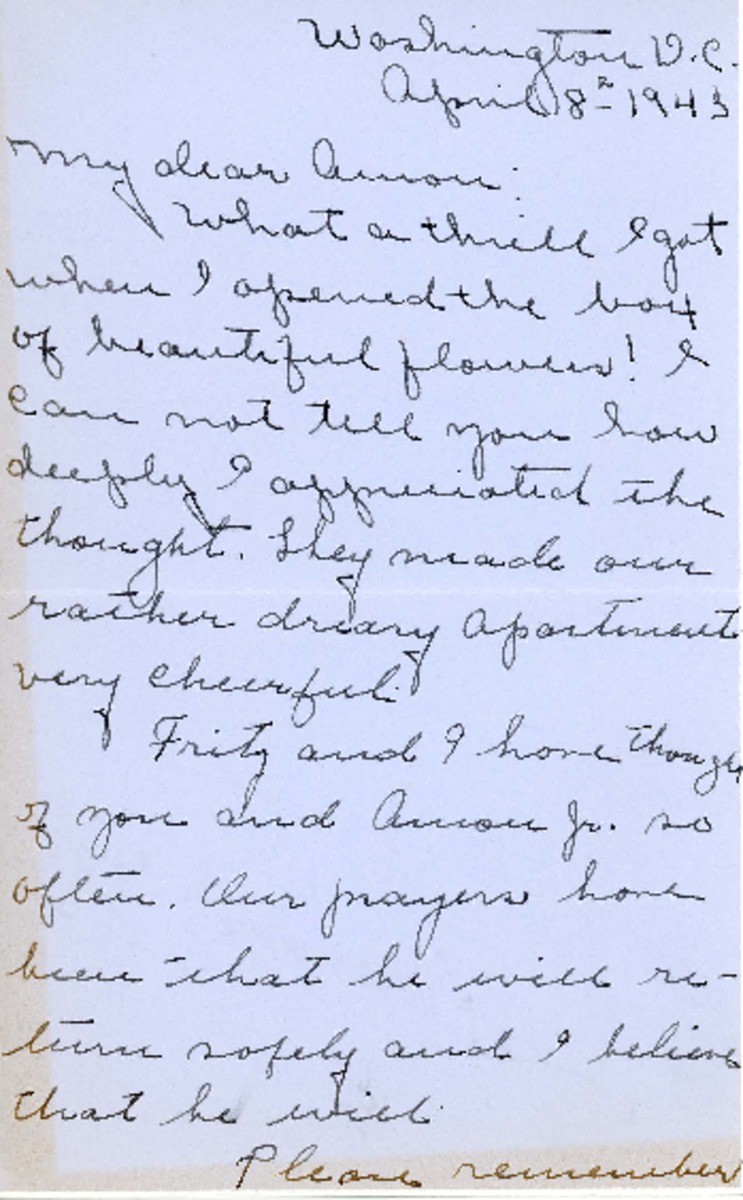 Washington D.C.
April 8th 1943
My dear Amon:
What a thrill I got
when I opened the box
of beautiful flowers! I
can not tell you how
deeply I appreciated the
thought. They made our
rather dreary apartment
very cheerful.
Fritz and I have though
of you and Amon Jr. so
often. Our prayers have
been that he will re-
turn safely and I believe
that he will.
Please remember